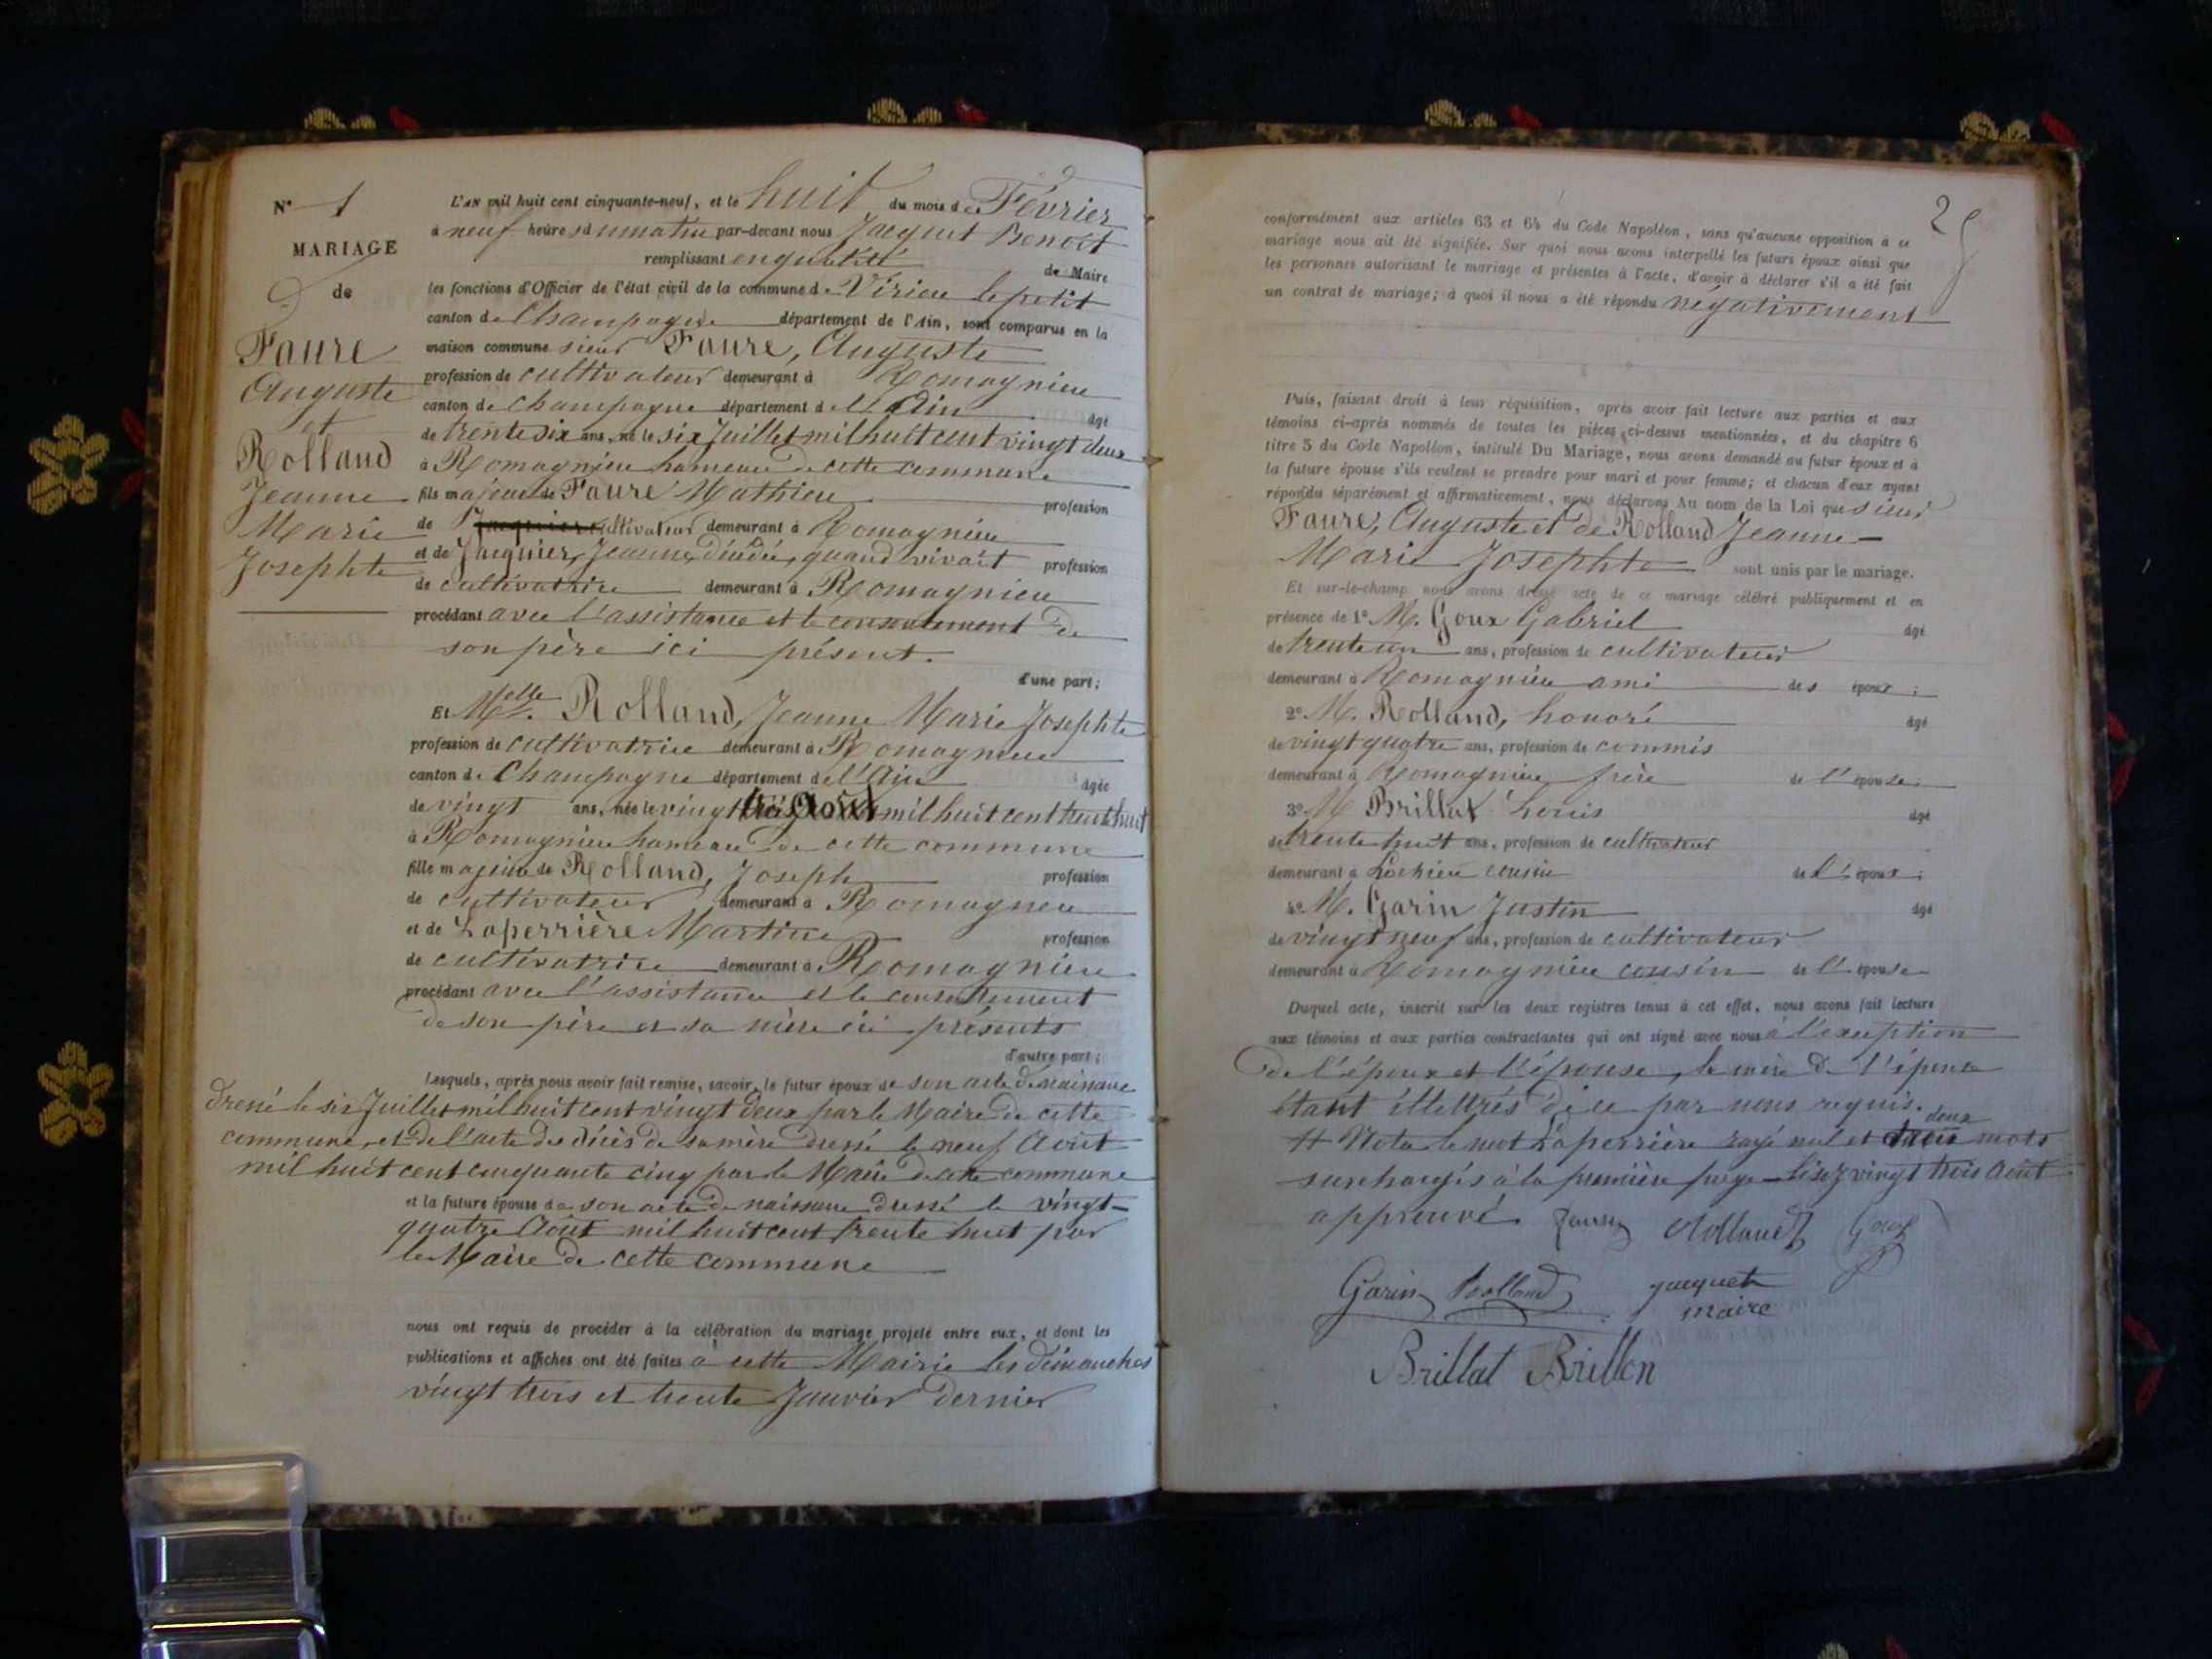 N° 1
MARIAGE
de
Faure
Auguste
et
Rolland
Jeanne
Marie
Josephte
L'AN mil huit cent cinquante-neuf, et le huit du mois de Février
à neuf heures du matin par-devant nous Jacquet Benoît
remplissant en qualité de Maire
les fonctions d'Officier de l'état civil de la commune de Virieu le petit
canton de Champagne département de l'Ain, sont comparus en la
maison commune sieur Faure, Auguste
profession de cultivateur demeurant à Romagnieu
canton de Champagne département de l'Ain âgé
de trente six ans, né le six Juillet mil huit cent vingt deux
à Romagnieu hameau de cette commune
fils majeur de Faure Mathieu profession
de cultivateur demeurant à Romagnieu
et de Jacquier, Jeanne, décédée, quand vivait profession
de cultivatrice demeurant à Romagnieu
procédant avec l'assistance et le consentement de
son père ici présent.
d'une part;
Et Melle. Rolland, Jeanne Marie Josephte
profession de cultivatrice demeurant à Romagnieu
canton de Champagne département de l'Ain âgée
de vingt ans, née le vingt trois Août mil huit cent trente huit
à Romagnieu hameau de cette commune
fille majeure de Rolland, Joseph profession
de cultivateur demeurant à Romagnieu
et de Laperrière Martine profession
de cultivatrice demeurant à Romagnieu
procédant avec l'assistance et le consentement
de son père et sa mère ici présents
d'autre part;
Lesquels, après nous avoir fait remise, savoir, le futur époux de son acte de naissance
dressé le six Juillet mil huit cent vingt deux par le Maire de cette
commune, et de l'acte de décès de sa mère dressé le neuf Août
mil huit cent cinquante cinq par le Maire de cette commune
et la future épouse de son acte de naissance dressé le vingt-
quatre Août mil huit cent trente huit par
le Maire de cette commune
nous ont requis de procéder à la célébration du mariage projeté entre eux, et dont les
publications et affiches ont été faites à cette Mairie les dimanches
vingt trois et trente Janvier dernier
conformément aux articles 63 et 64 du Code Napoléon, sans qu'aucune opposition à ce
mariage nous ait été signifiée. Sur quoi nous avons interpellé les futurs époux ainsi que
les personnes autorisant le mariage et présentes à l'acte, d'avoir à déclarer s'il a été fait
un contrat de mariage; à quoi il nous a été répondu négativement
Puis, faisant droit à leur réquisition, après avoir fait lecture aux parties et aux
témoins ci-après nommés de toutes les pièces ci-dessus mentionnées, et du chapitre 6
titre 5 du Code Napoléon, intitulé Du Mariage, nous avons demandé au futur époux et à
la future épouse s'ils veulent se prendre pour mari et pour femme; et chacun d'eux ayant
répondu séparément et affirmativement, nous déclarons Au nom de la Loi que sieur
Faure, Auguste et de Rolland Jeanne-
Marie Josephte sont unis par le mariage.
Et sur-le-champ nous avons dressé acte de ce mariage célébré publiquement et en
présence de 1° M. Goux Gabriel âgé
de trente un ans, profession de cultivateur
demeurant à Romagnieu ami des époux;
2° M. Rolland, honoré âgé
de vingt quatre ans, profession de commis
demeurant à Romagnieu frère de l'épouse
3° M Brillat Louis âgé
de trente huit ans, profession de cultivateur
demeurant à cousin de l'époux;
4° M. Garin Justin âgé
de vingt neuf ans, profession de cultivateur
demeurant à Romagnieu cousin de l'épouse
Duquel acte, inscrit sur les deux registres tenus à cet effet, nous avons fait lecture
aux témoins et aux parties contractantes qui ont signé avec nous à l'exception
de l'époux et l'épouse, la mère de l'épouse
étant illettrés de ce par nous requis.
# Nota le mot Laperrière rayé nul et deux mots
surchargés à la première page lisez vingt trois Août
approuvé Faure Rolland Goux
Garin Rolland Jacquet
maire
Brillat Brillon